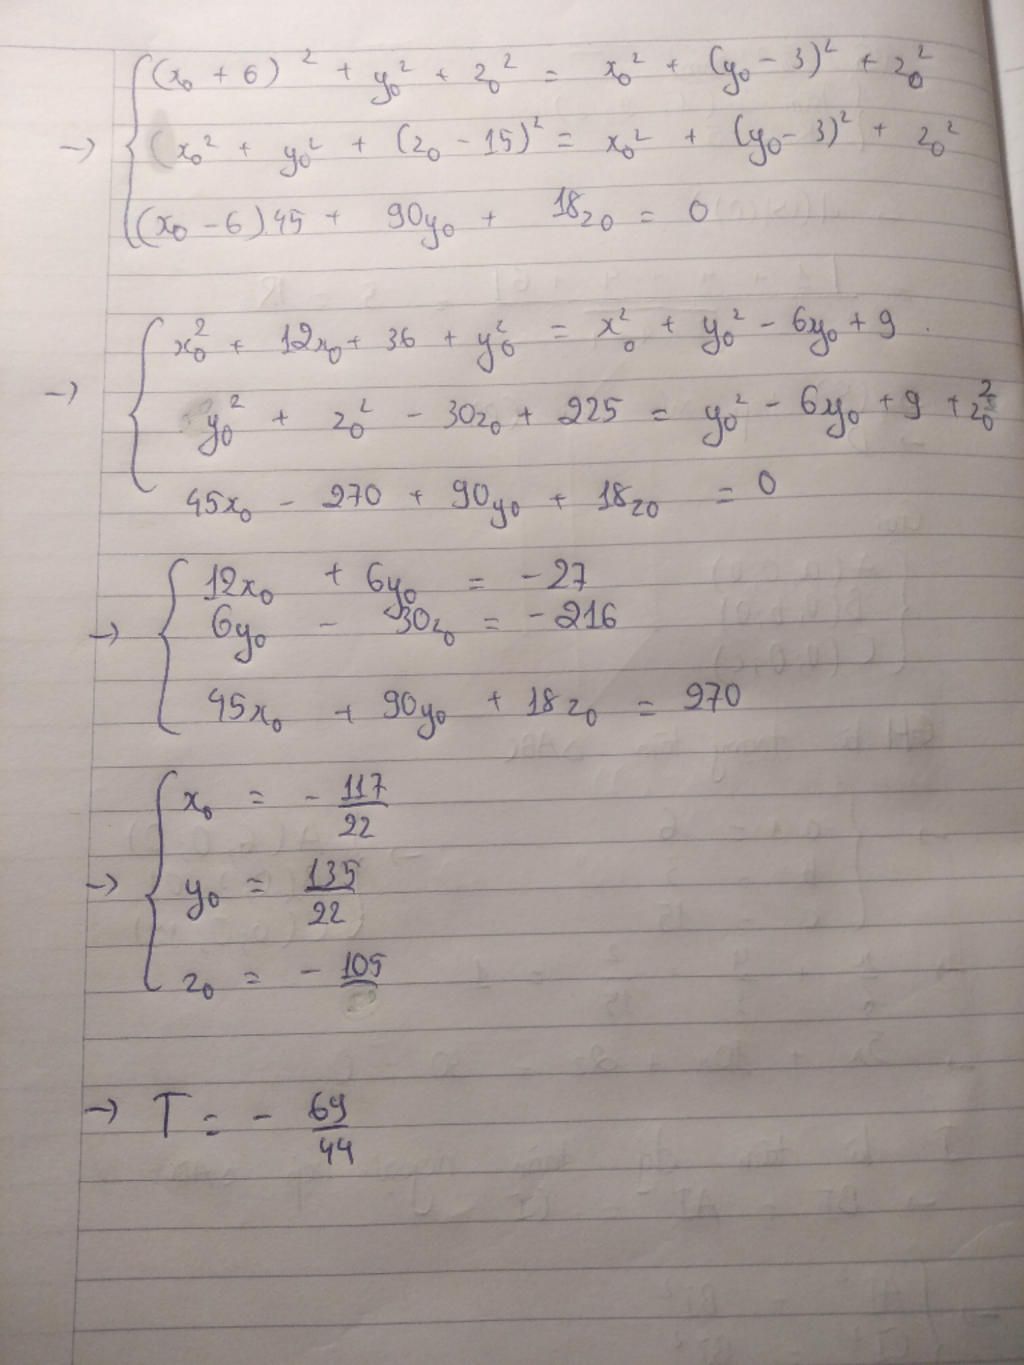 (x₀ + 6)² + y₀² + z₀² = x₀² + (y₀ - 3)² + z₀²
→ (x₀² + y₀² + (z₀ - 15)² = x₀² + (y₀ - 3)² + z₀²
(x₀ - 6).45 + 90y₀ + 18z₀ = 0
x₀² + 12x₀ + 36 + y₀² = x₀² + y₀² - 6y₀ + 9
→ y₀² + z₀² - 30z₀ + 225 = y₀² - 6y₀ + 9 + z₀²
45x₀ - 270 + 90y₀ + 18z₀ = 0
12x₀ + 6y₀ = -27
→ 6y₀ - 30z₀ = -216
45x₀ + 90y₀ + 18z₀ = 270
x₀ = - 117/22
→ y₀ = 135/22
z₀ = - 105
→ T = - 69/44